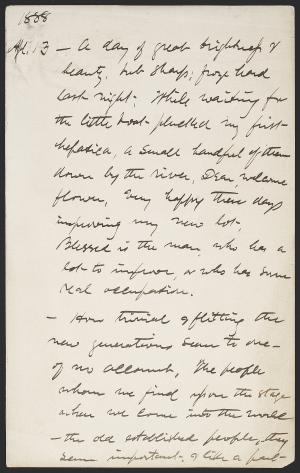 1888
Apl. 13 — A day of great brightness &
beauty, but sharp; froze hard
last night. While waiting for
the little boat plucked my first
hepatica, a small handful of them
down by the river, Dear welcome
flower, Very happy these days
improving my new lot.
Blessed is the man who has a
lot to improve, or who has some
real occupation.
— How trivial & flitting the
new generations seem to one—
of no account, The people
whom we find upon the stage
when we come into the world
— the old established people, they
seem important & like a part